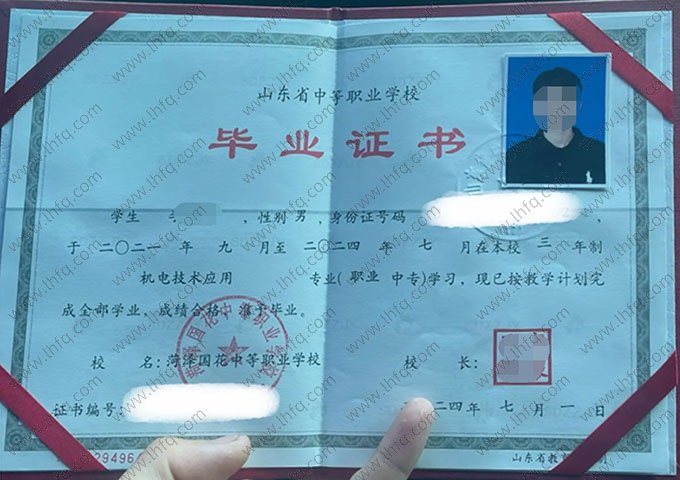 山东省中等职业学校
毕业证书
学生 ，性别 男，身份证号码 ，
于 二〇二一 年 九 月至 二〇二四 年 七 月在本校 三 年制
机电技术应用 专业（职业 中专）学习，现已按教学计划完
成全部学业，成绩合格，准予毕业。
校 名：菏泽国花中等职业学校 校 长：
证书编号： 二四年 七 月 一 日
29496
山东省教
www.lhfq.com